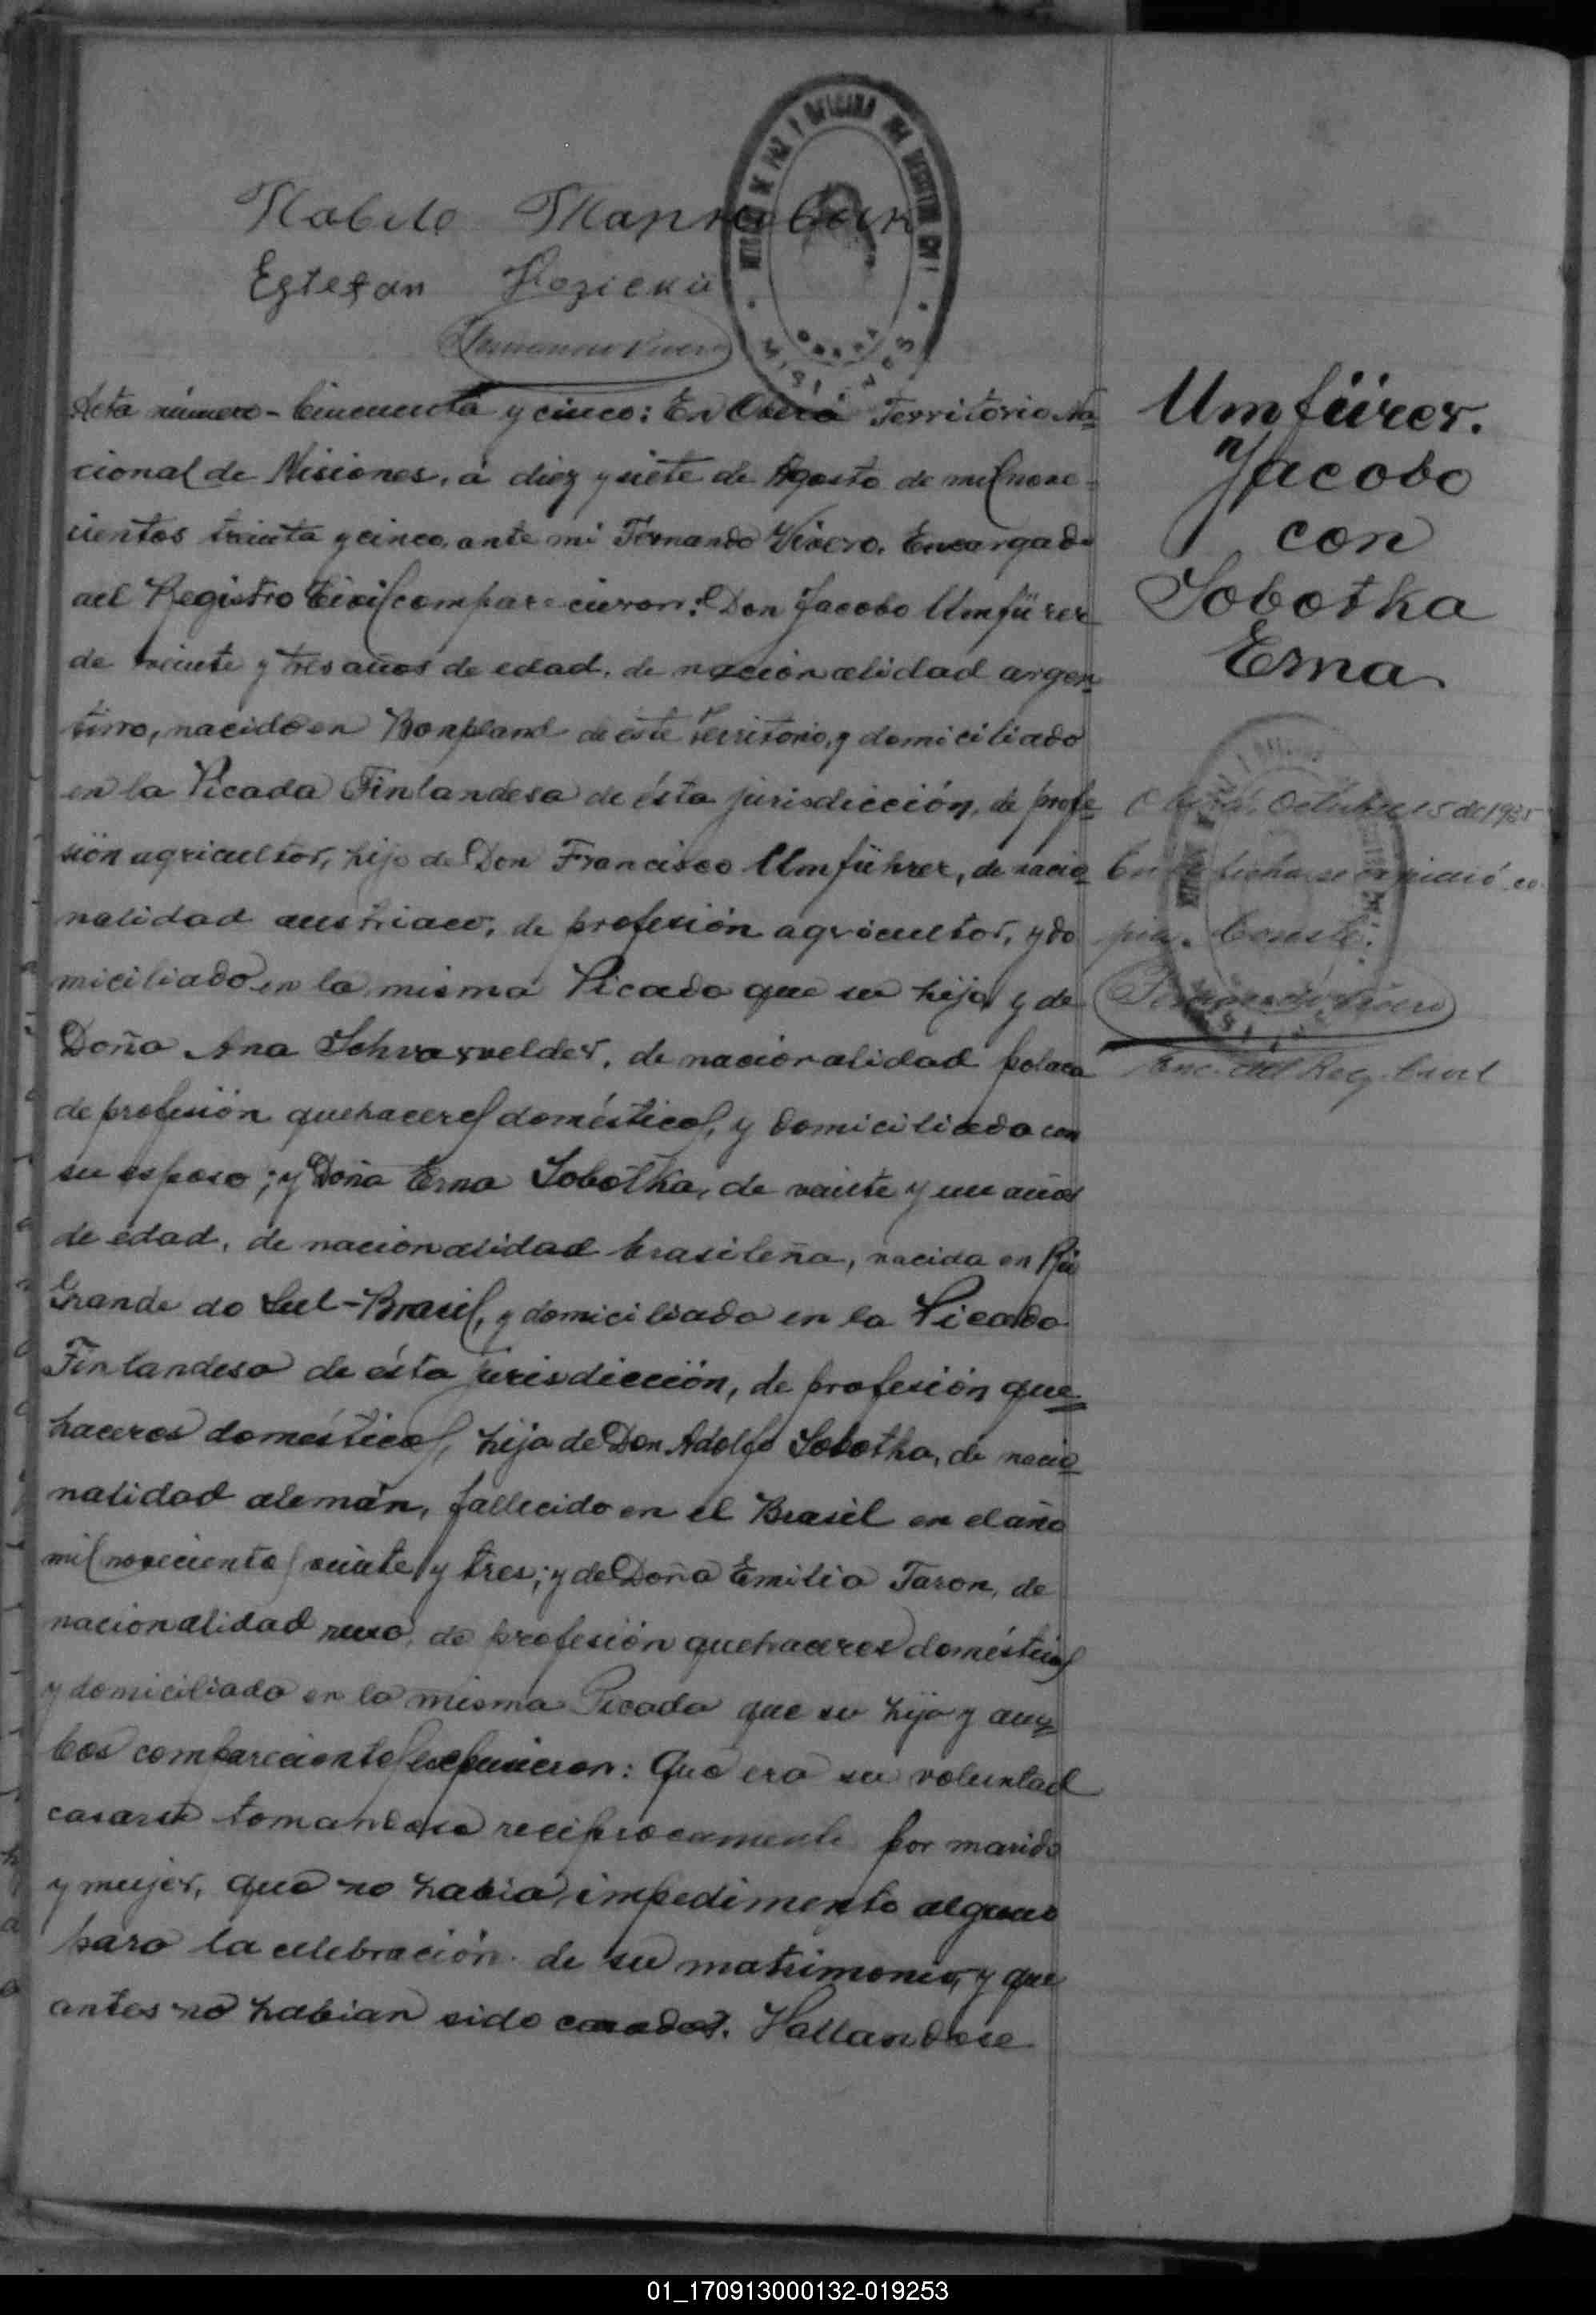 Estefan
Fernando Vivero
Acta número - Cincuenta y cinco: En Oberá Territorio Na=
cional de Misiones, á diez y siete de Agosto de mil nove-
cientos treinta y cinco, ante mi Fernando Vivero, Encargado
del Registro Civil comparecieron: Don Jacobo Umfürer
de veinte y tres años de edad, de nacionalidad argen=
tino, nacido en Bonpland de éste Territorio, y domiciliado
en la Picada Finlandesa de ésta jurisdicción, de profe=
sión agricultor, hijo de Don Francisco Umführer, de nacio=
nalidad austriaco, de profesión agricultor, y do
miciliado en la misma Picada que su hijo y de
Doña Ana Schvarvelder, de nacionalidad polaca
de profesión quehaceres domésticos, y domiciliada con
su esposo; y Doña Erna Sobotka, de veinte y un años
de edad, de nacionalidad brasileña, nacida en Río
Grande do Sul-Brasil, y domiciliada en la Picada
Finlandesa de ésta jurisdicción, de profesión que=
haceres domésticos, hija de Don Adolfo Sobotka, de nacio=
nalidad alemán, fallecido en el Brasil en el año
mil novecientos veinte y tres; y de Doña Emilia Taron, de
nacionalidad rusa, de profesión quehaceres domésticos
y domiciliada en la misma Picada que su hija y am=
bos comparecientes expusieron: Que era su voluntad
casarse tomandose reciprocamente por marido
y mujer, que no habia impedimento alguno
para la celebración de su matrimonio, y que
antes no habian sido casados. Hallandose
Umfürer.
Jacobo
con
Sobotka
Erna
Oberá, Octubre 15 de 1935
En la fecha se expidió co-
pia. Conste.
Fernando Vivero
Enc. del Reg. Civil
01_170913000132-019253